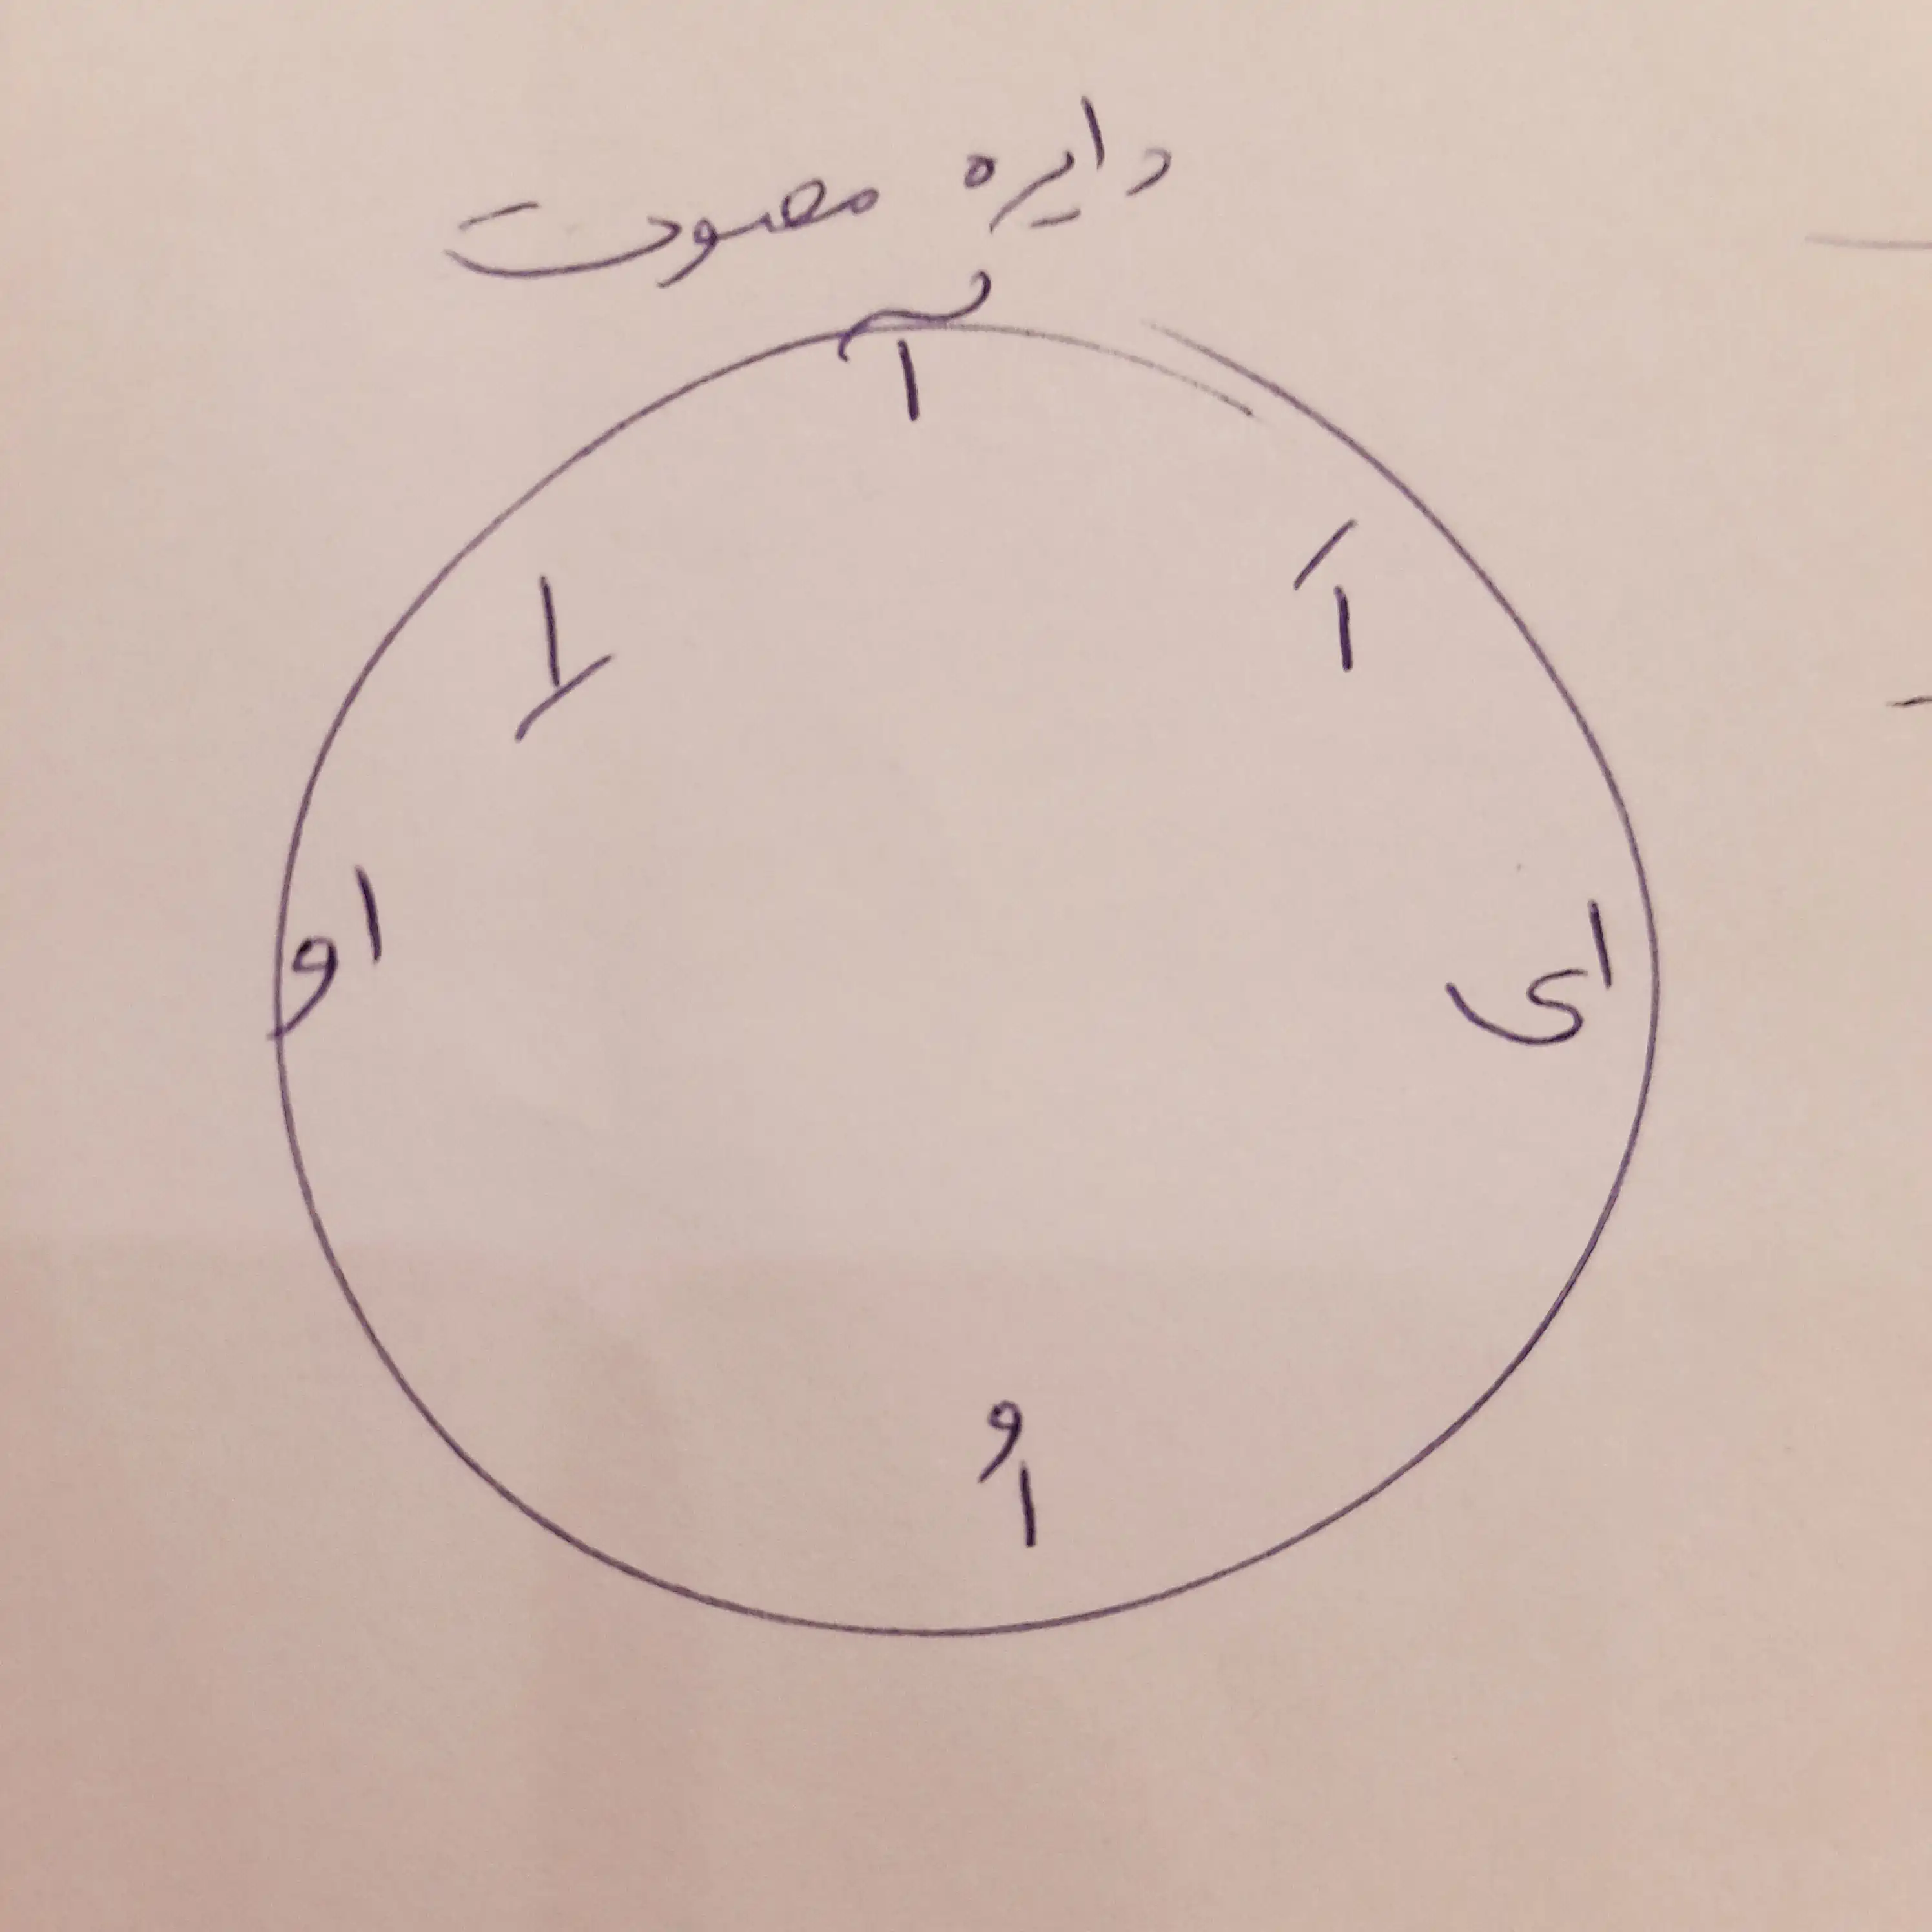 دایره مصوت
آ
اَ
اِ
ای
او
اُ